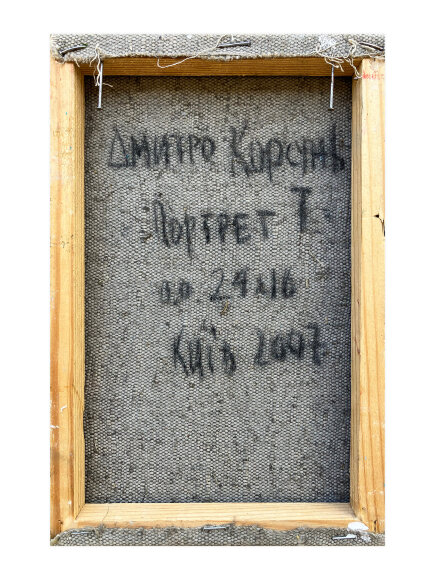 Дмитро Корсунь
Портрет Т
о.п. 24х16
Київ 2007